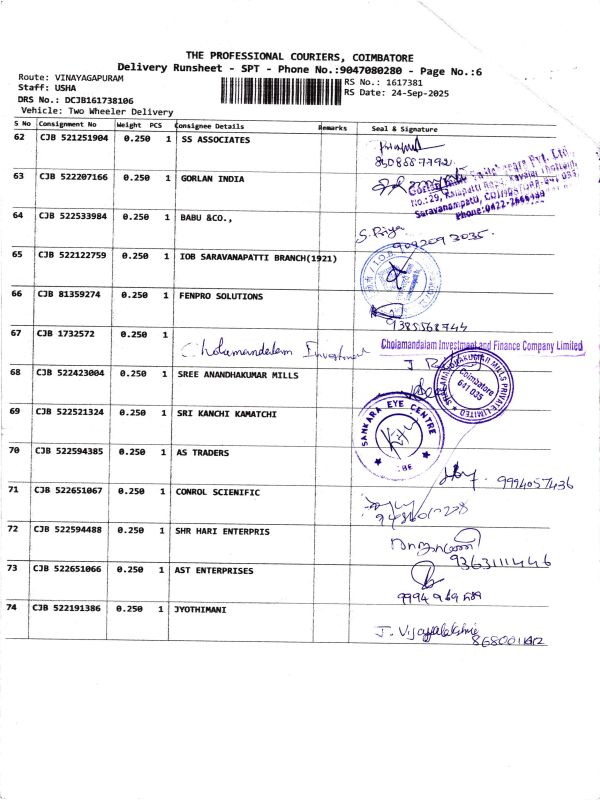 THE PROFESSIONAL COURIERS, COIMBATORE
Delivery Runsheet - SPT - Phone No.:9047080280 - Page No.:6
Route: VINAYAGAPURAM
RS No.: 1617381
Staff: USHA
RS Date: 24-Sep-2025
DRS No.: DCJB161738106
Vehicle: Two Wheeler Delivery
S No Consignment No Weight PCS Consignee Details Remarks Seal & Signature
62 CJB 521251904 0.250 1 SS ASSOCIATES
63 CJB 522207166 0.250 1 GORLAN INDIA
64 CJB 522533984 0.250 1 BABU &CO.,
S. Priya
9092093035.
65 CJB 522122759 0.250 1 IOB SARAVANAPATTI BRANCH(1921)
66 CJB 81359274 0.250 1 FENPRO SOLUTIONS
9385568744
67 CJB 1732572 0.250 1 Cholamandalam Investment
Cholamandalam Investment and Finance Company Limited
68 CJB 522423004 0.250 1 SREE ANANDHAKUMAR MILLS
SREE ANANDHAKUMAR MILLS PRIVATE LIMITED
Coimbatore
641 035
69 CJB 522521324 0.250 1 SRI KANCHI KAMATCHI
SANKARA EYE CENTRE
70 CJB 522594385 0.250 1 AS TRADERS
9994057436
71 CJB 522651067 0.250 1 CONROL SCIENIFIC
72 CJB 522594488 0.250 1 SHR HARI ENTERPRIS
9363111446
73 CJB 522651066 0.250 1 AST ENTERPRISES
74 CJB 522191386 0.250 1 JYOTHIMANI
J. Vijayalakshmi